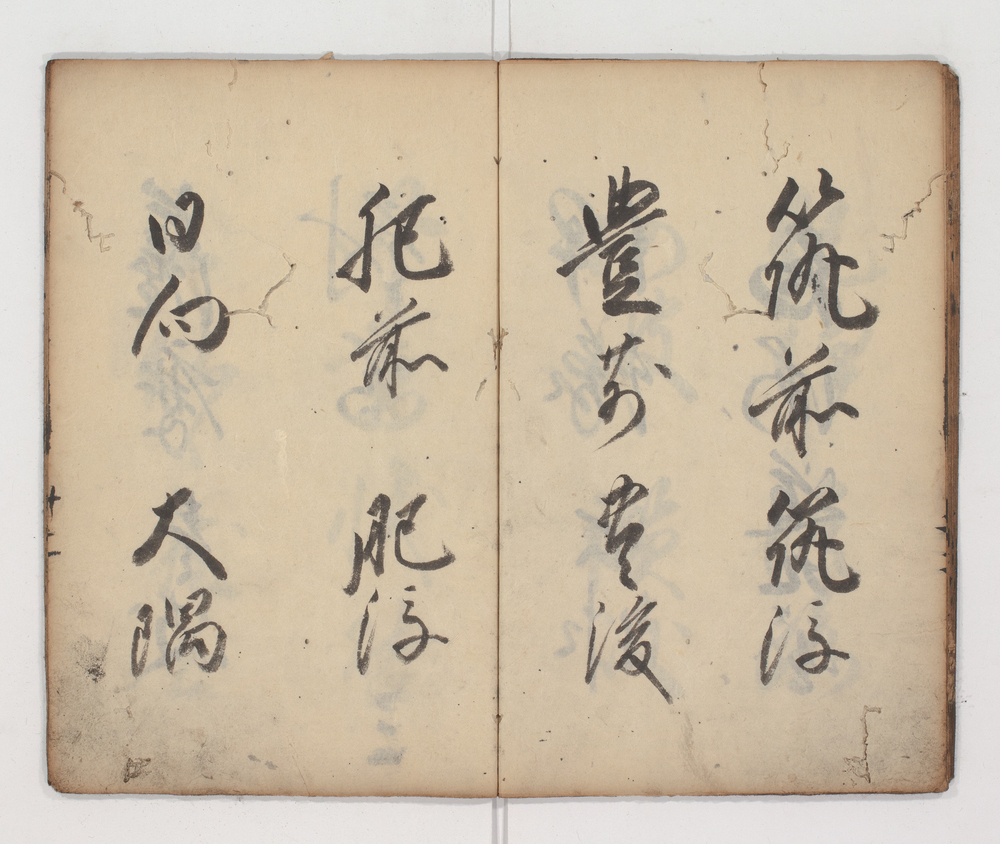 筑前筑後
豊前豊後
肥前肥後
日向
大隅